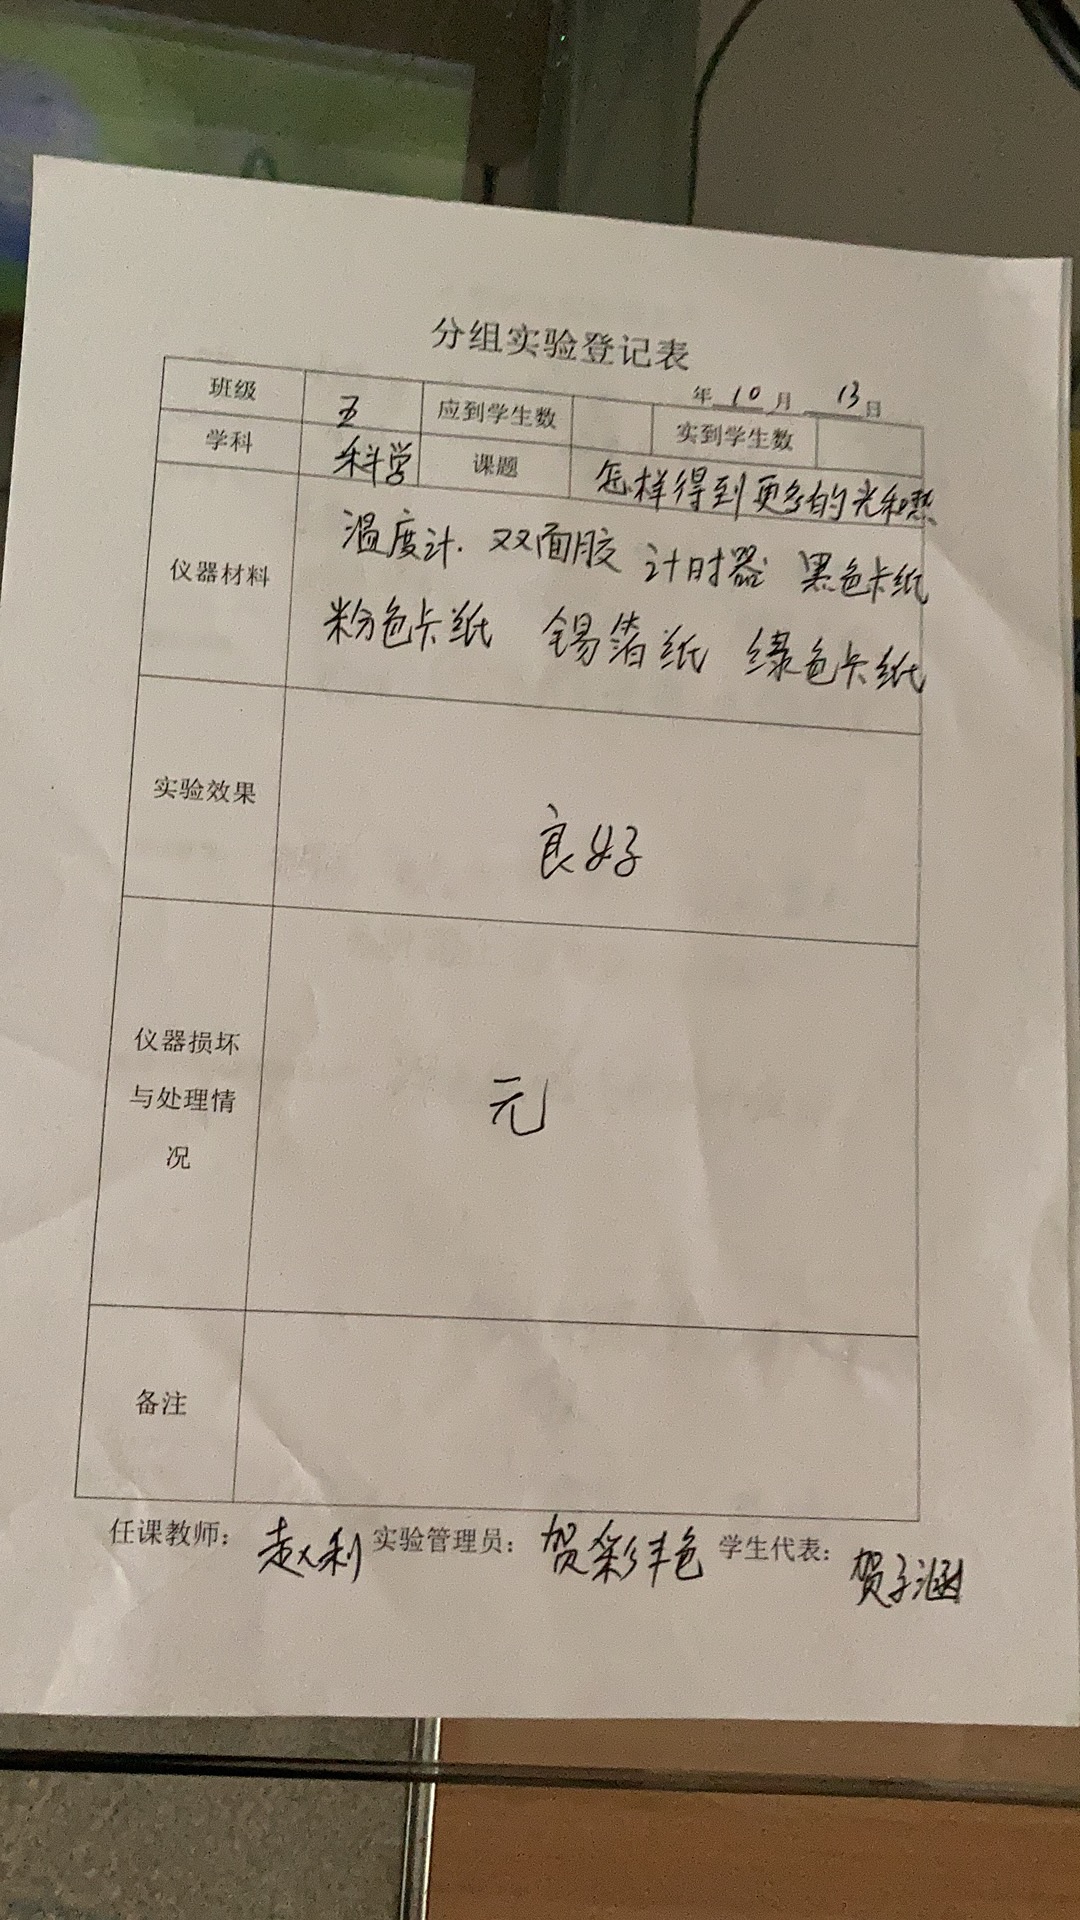 分组实验登记表
年 10 月 13 日
班级 五 应到学生数 实到学生数
学科 科学 课题 怎样得到更多的光和热
仪器材料
温度计. 双面胶 计时器 黑色卡纸
粉色卡纸 锡箔纸 绿色卡纸
实验效果 良好
仪器损坏
与处理情
况
元
备注
任课教师: 赵利 实验管理员: 贺彩艳 学生代表: 贺子涵